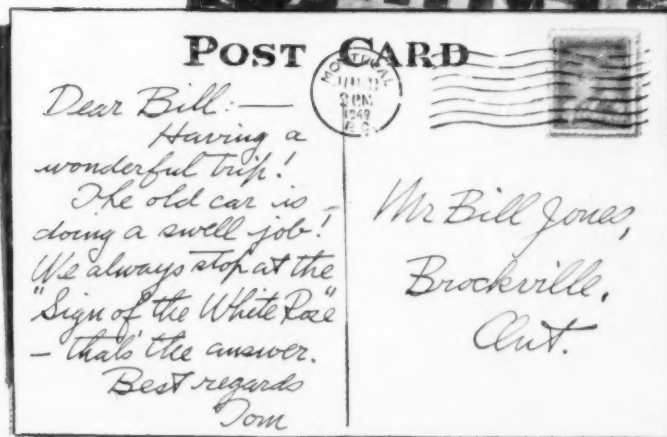 POST CARD
MONTREAL
2 PM
1949
Dear Bill: —
Having a
wonderful trip!
The old car is -
doing a swell job!
We always stop at the
"Sign of the White Rose"
- that's the answer.
Best regards
Tom
Mr Bill Jones,
Brockville,
Ont.